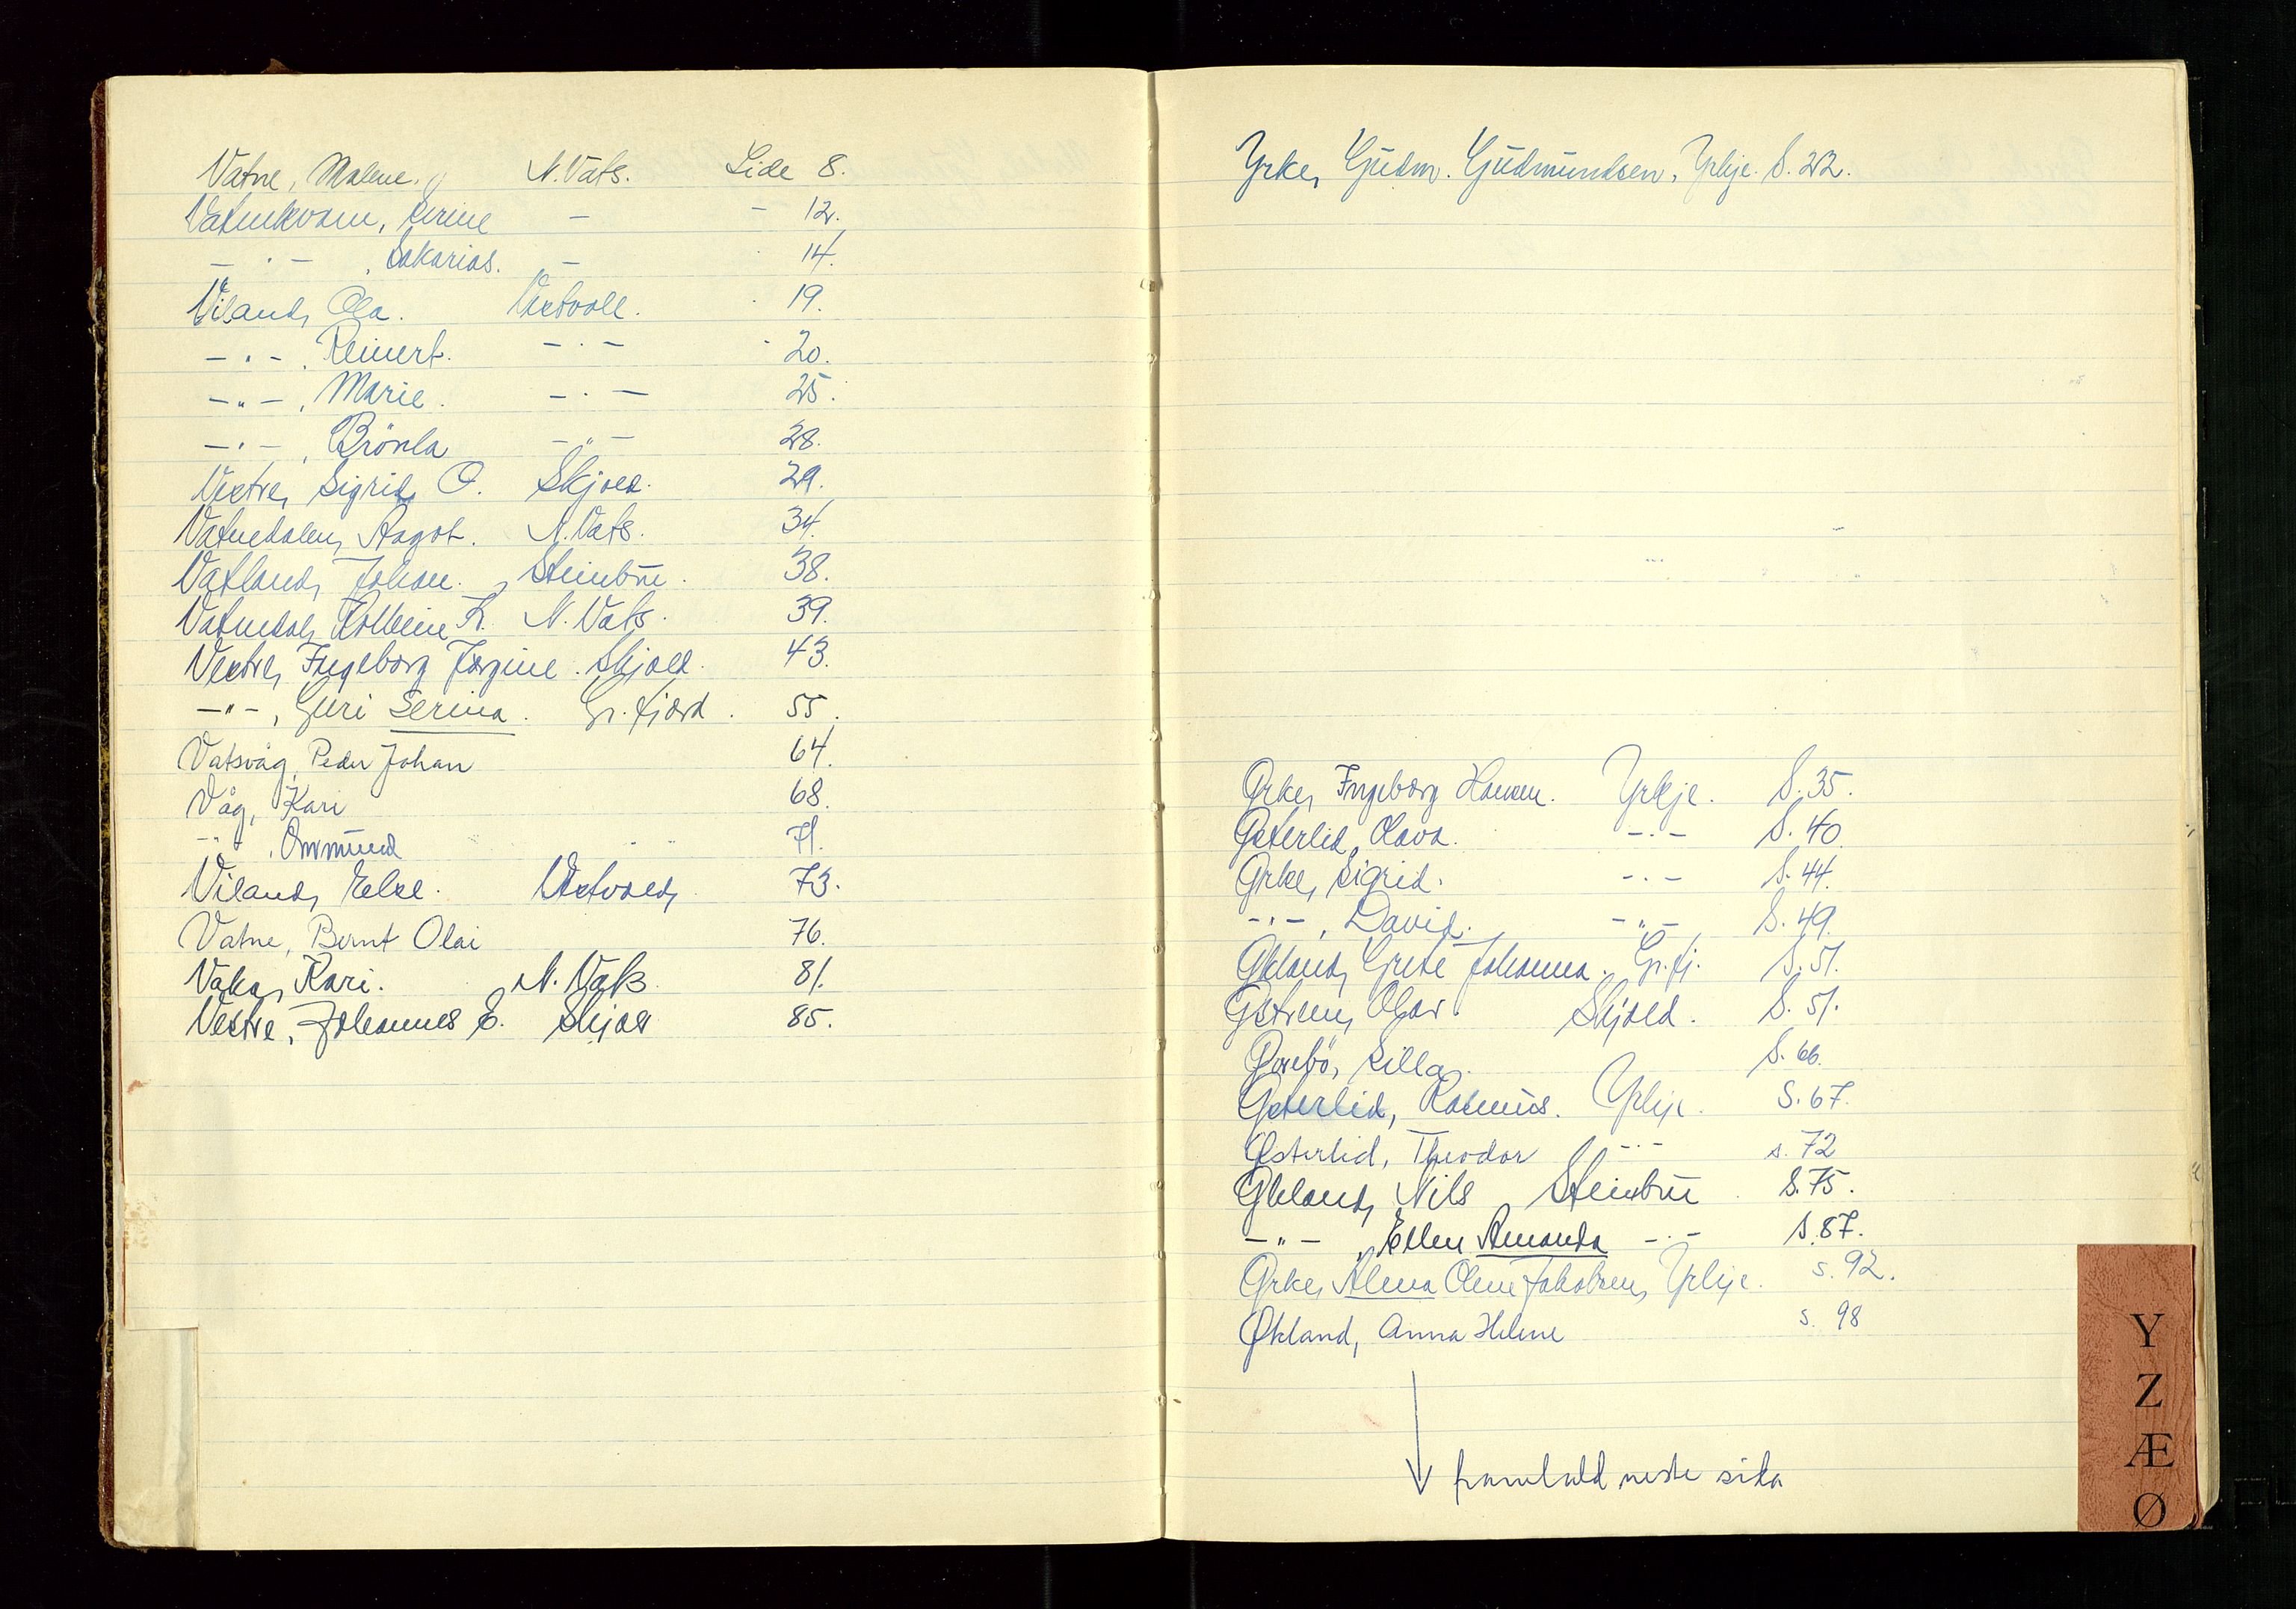 Vatne, Malene, N. Vats. Side 8.
Vatnekvam, Serine — - 12.
— " — , Sakarias. — 14.
Viland, Ola. Vestvoll. 19.
— " — , Reinert. — " — 20.
— " — , Marie. — " — 25.
— " — , Brönla — " — 28.
Vestre, Sigrid O. Skjold. 29.
Vatnedalen, Aagot. N. Vats. 34.
Vatland, Johan. Steinbru. 38.
Vatnedal, Kolbein K. N. Vats. 39.
Vestre, Ingeborg Jorgine. Skjold. 43.
— " — , Guri Serina. Gr.fjord. 55.
Vatsvåg, Peder Johan 64.
Våg, Kari 68.
— " — , Ommund 71.
Viland, Else. Vestvold, 73.
Vatne, Bernt Olai 76.
Vaka, Kari. N. Vats 81.
Vestre, Johannes E. Skjold 85.
Yrke, Gudm. Gudmundsen, Yrkje. S. 22.
Ørke, Ingeborg Hansen. Yrkje. S. 35.
Østerlid, Olava. — " — S. 40.
Ørke, Sigrid. — " — S. 44.
— " — , David. — " — S. 49.
Økland, Grete Johanna. Gr.fj. S. 51.
Østrem, Olav. Skjold. S. 51.
Silla. S. 66.
Østerlid, Rasmus. Yrkje. S. 67.
Østerlid, Theodor — " — s. 72
Økland, Nils, Steinbru S. 75.
— " — , Ellen Amanda — " — S. 87.
Ørke, Alma Oline Jakobsen, Yrkje. s. 92.
Økland, Anna Helene s. 98
framhald neste sida
Y
Z
Æ
Ø